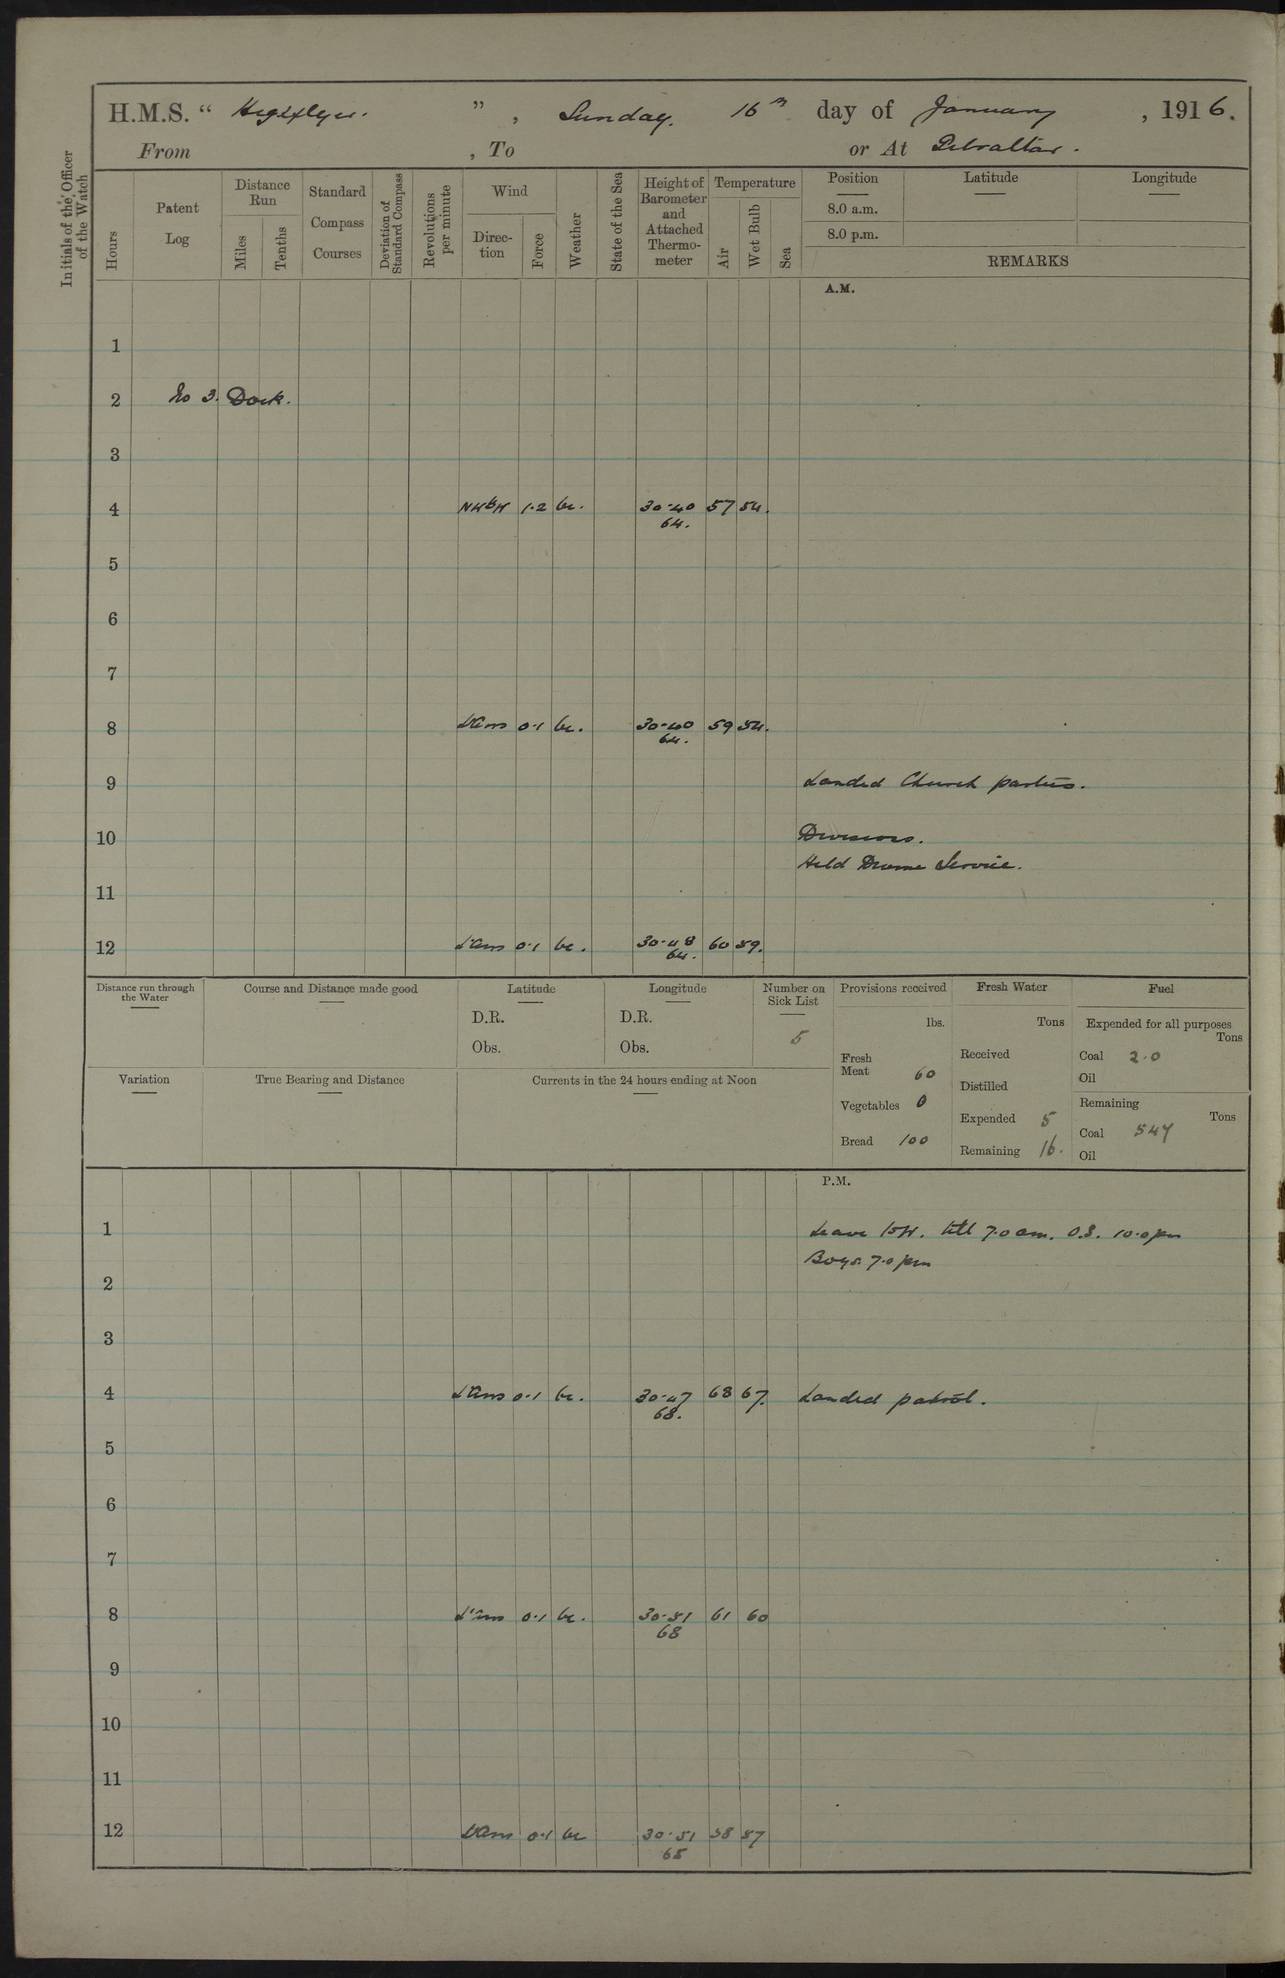 H.M.S. " Highflyer. ", Sunday. 16th day of January, 1916.
From , To or At Gibraltar.
Initials of the Officer of the Watch
Hours
Patent Log
Distance Run
Miles
Tenths
Standard Compass Courses
Deviation of Standard Compass
Revolutions per minute
Wind
Direction
Force
Weather
State of the Sea
Height of Barometer and Attached Thermometer
Temperature
Air
Wet Bulb
Sea
Position
8.0 a.m.
8.0 p.m.
Latitude
Longitude
REMARKS
A.M.
1
2 No 3. Dock.
3
4 NWbW 1.2 bc. 30.40 57 54.
64.
5
6
7
8 0.1 bc. 30.40 59 54.
64.
9 Landed Church parties.
10 Divisions.
Held Divine Service.
11
12 0.1 bc. 30.48 60 59.
64.
Distance run through the Water
Course and Distance made good
Latitude
D.R.
Obs.
Longitude
D.R.
Obs.
Number on Sick List
5
Provisions received
lbs.
Fresh Meat 60
Vegetables 0
Bread 100
Fresh Water
Tons
Received
Distilled
Expended 5
Remaining 16.
Fuel
Expended for all purposes
Tons
Coal 2.0
Oil
Remaining
Tons
Coal 547
Oil
Variation
True Bearing and Distance
Currents in the 24 hours ending at Noon
P.M.
1 Leave till 7.0 am. O.S. 10.0 pm
Boys. 7.0 pm
2
3
4 0.1 bc. 30.47 68 67. Landed patrol.
68.
5
6
7
8 0.1 bc. 30.51 61 60
68
9
10
11
12 0.1 bc 30.51 58 57
65